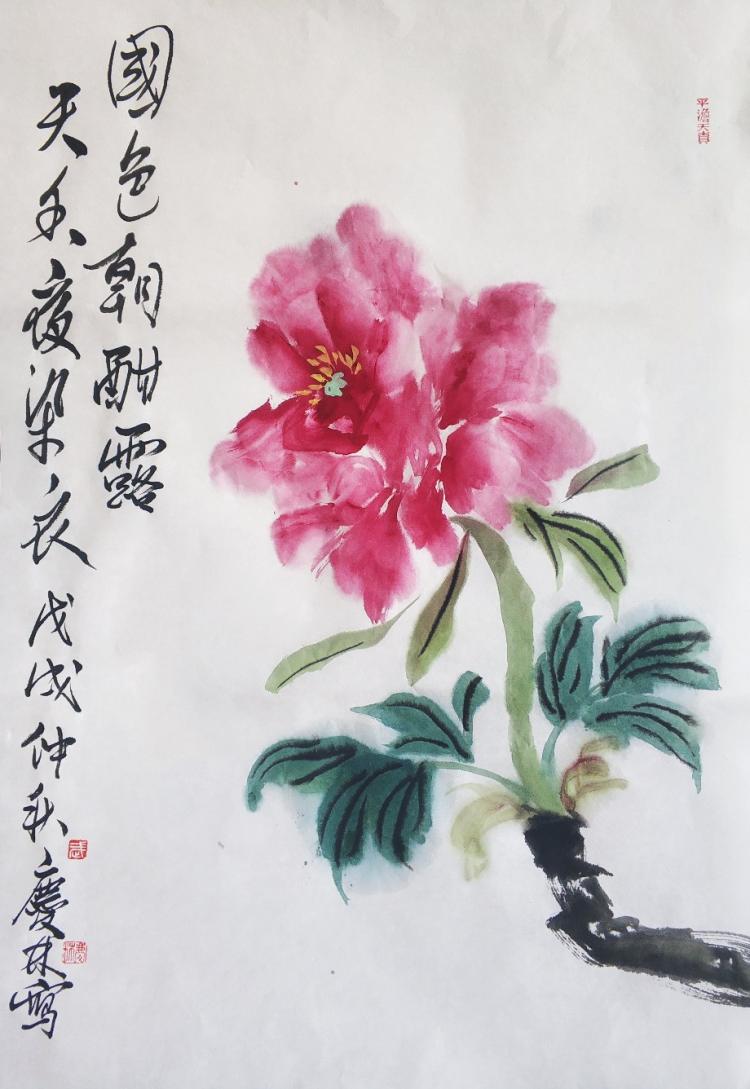 平澹天真
國色朝酣露
天香夜染衣 戊戌仲秋 慶林寫